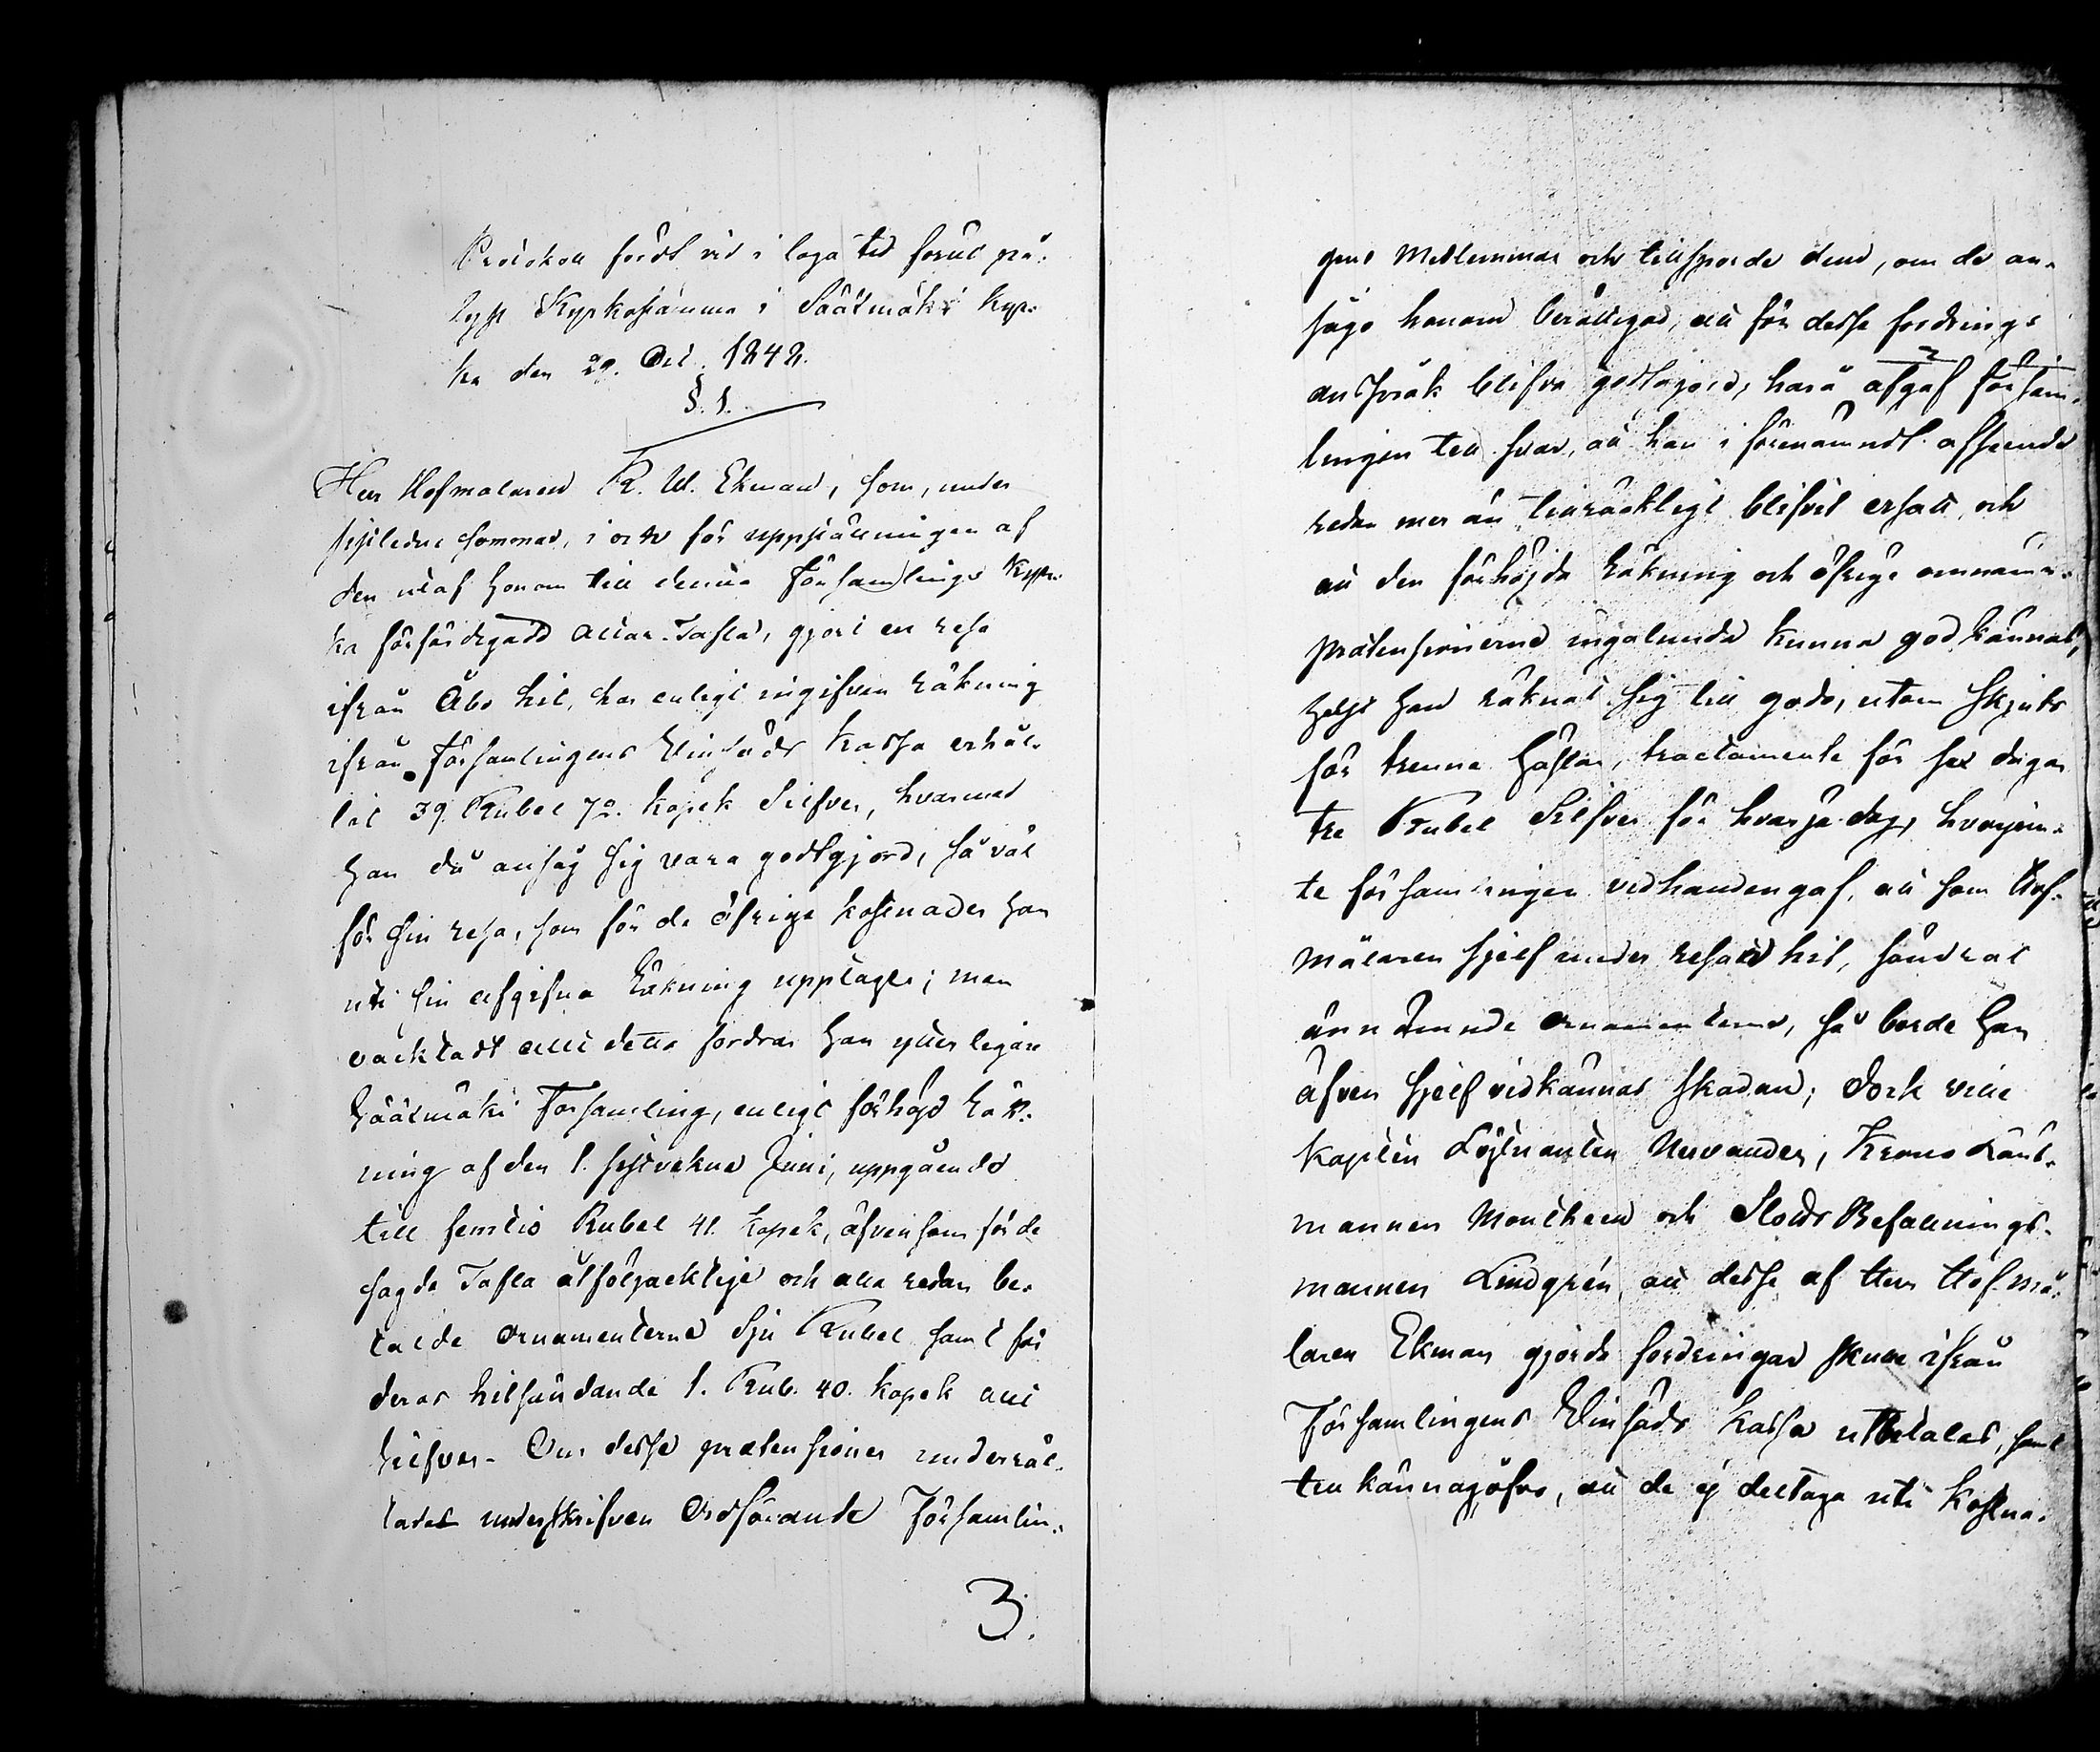 Protokoll fördt vid i laga tid förut på-
lyst Kyrkostämma i Sääxmäki Kyr-
ka den 29. Oct. 1848.
§. 1.
Herr Hofmålaren R. W. Ekman, som, under
sistledne sommar, i och för uppställningen af
den utaf honom till denna Församlings Kyr-
ka förfärdigade Altar-Tafla, gjort en resa
ifrån Åbo hit, har enligt ingifven räkning
ifrån Församlingens Vinsäds Kassa erhål-
lit 39. Rubel 72. Kopek Silfver, hvarmed
han då ansåg sig vara godtgjord, så väl
för sin resa, som för de öfriga kostnader han
uti sin afgifna Räkning upptagit; men
oacktadt allt detta fordrar han ytterligare
Sääxmäki Församling, enligt förhöjd Räk-
ning af den 1. sistvekne Juni, uppgående
till femtio Rubel 41. Kopek, äfvensom för de
sagde Tafla åtföljacktige och alla redan be-
talde Ornamenterne Sju Rubel samt för
deras hitsändande 1. Rub. 40. Kopek allt
Silfver. Om desse prætensioner underrät-
tade underskrifven Ordförande Församlin-
3.
gens Medlemmar och tillsporde dem, om de an-
sågo honom berättigad, att för desse fordrings
anspråk blifva godtgjord, hvarå afgaf försam-
lingen till svar, att han i förenämndt afseende
redan mer än tillräckligt blifvit ersatt, och
att den förhöjda Räkning och öfrige omnämn-
prætensionerne ingalunda kunna godkännas,
helst han räknat sig till godo, utom skjuts
för trenne hästar, tractamente för sex dagar
tre Rubel Silfver för hvarje dag, hvarjem-
te församlingen vidhandengaf, att som Hof-
målaren sjelf under resan hit, söndrat
ännämnde Ornamenterne, så borde han
äfven sjelf vidkännas skadan; dock ville
Kaptén Löjtnanten Nervander, Krono Länt-
mannen Montheen och Slotts Befallnings-
mannen Lindgrén, att desse af Herr Hofmå-
laren Ekman gjorde fordringar skulle ifrån
Församlingens Vinsäds Kassa utbetalas, samt
tillkännagåfvo, att de ej deltaga uti kostna-